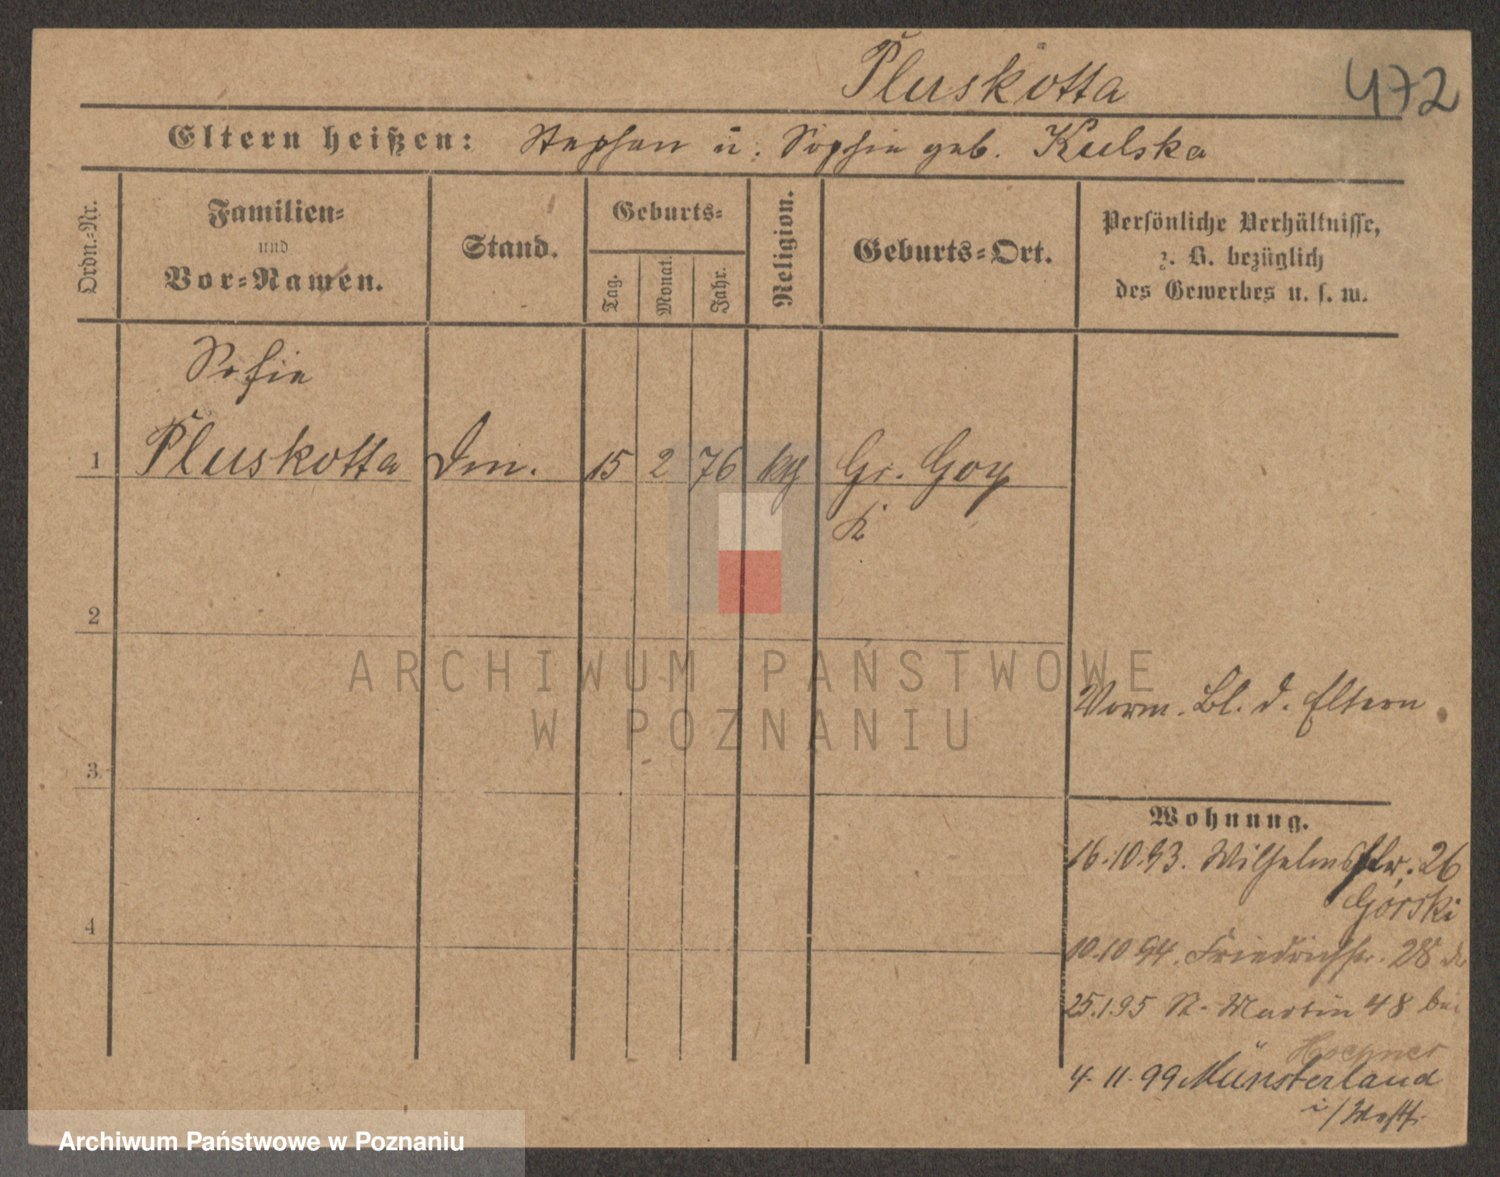 Pluskotta
472
Eltern heißen: Stephan u. Sophie geb. Kulska
Ordn.-Nr.
Familien-
und
Vor-Namen.
Stand.
Geburts-
Tag.
Monat.
Jahr.
Religion.
Geburts-Ort.
Persönliche Verhältnisse,
z. B. bezüglich
des Gewerbes u. s. w.
Sofie
1 Pluskotta 15 2 76 kg Gr. Goy
2
ARCHIWUM PAŃSTWOWE
W POZNANIU
Vorm. Bl. d. Eltern
3
Wohnung.
16.10.93. Wilhelmstr. 26
Górski
4
10.10.94. Friedrichstr. 28
25.1.95 St. Martin 48 bei
Hoepner
4.11.99 Münsterland
i/Westf.
Archiwum Państwowe w Poznaniu